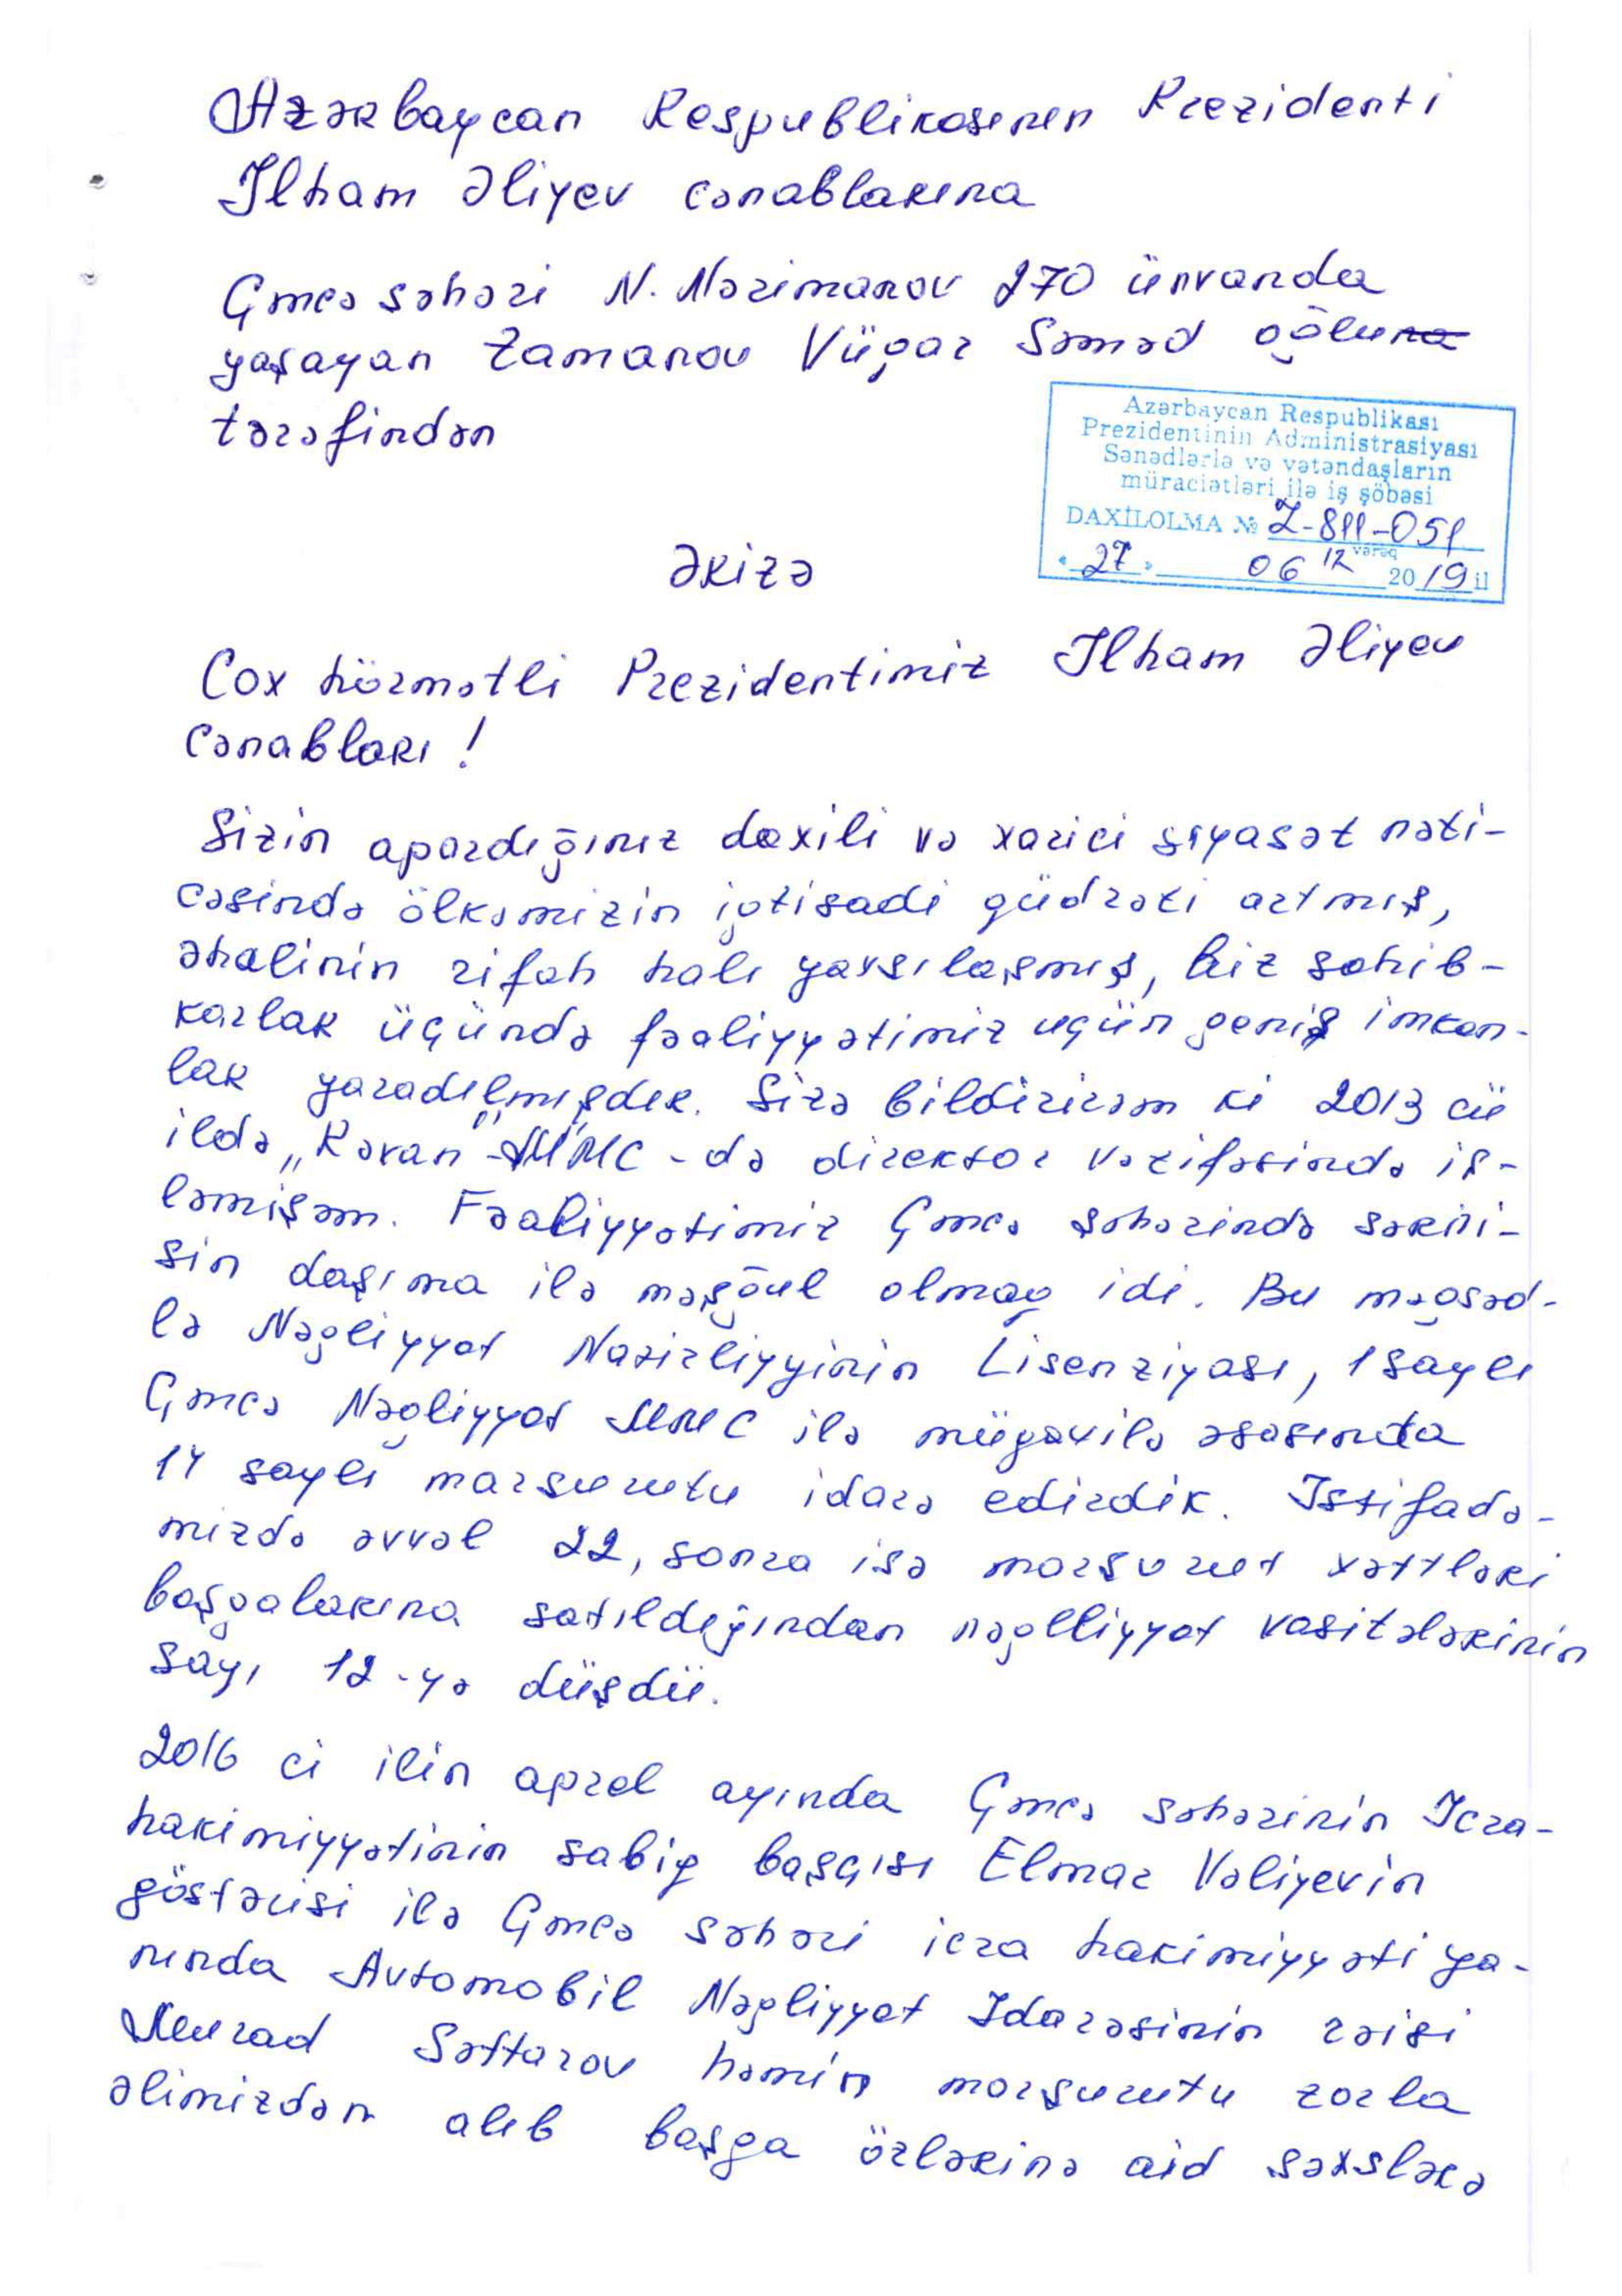 Azərbaycan Respublikasının Prezidenti
İlham Əliyev cənablarına
Gəncə şəhəri N. Nərimanov 270 ünvanda
yaşayan Zamanov Vüqar Səməd oğluna
tərəfindən
Azərbaycan Respublikası
Prezidentinin Administrasiyası
Sənədlərlə və vətəndaşların
müraciətləri ilə iş şöbəsi
DAXİLOLMA № Z-811-051
« 27 » 06 12 vərəq 2019 il
Ərizə
Cox hörmətli Prezidentimiz İlham Əliyev
Cənabları!
Sizin apardığınız daxili və xarici siyasət nəti-
cəsində ölkəmizin iqtisadi qüdrəti artmış,
əhalinin rifah halı yaxsılaşmış, biz sahib-
karlar üçündə fəaliyyətimiz uçün geniş imkan-
lar yaradılmışdır. Sizə bildirirəm ki 2013 cü
ildə „Rəvan" MMC-də direktor vəzifəsində iş-
ləmişəm. Fəaliyyətimiz Gəncə şəhərində sərni-
şin daşıma ilə məşğul olmaq idi. Bu məqsəd-
lə Nəqliyyat Nazirliyyinin Lisenziyası, 1 saylı
Gəncə Nəqliyyat MMC ilə müqavilə əsasında
14 saylı marsurutu idarə edirdik. Istifadə-
mizdə əvvəl 22, sonra isə marsurut xəttləri
başqalarına satıldığından nəqlliyyat vasitələrinin
sayı 12-yə düşdü.
2016 ci ilin aprel ayında Gəncə səhərinin Icra-
hakimiyyətinin sabiq başçısı Elmar Vəliyevin
göstərisi ilə Gəncə səhəri icra hakimiyyəti ya-
nında Avtomobil Nəqliyyat Idarəsinin rəisi
Murad Səttarov həmin marşurutu zorla
əlimizdən alıb başqa özlərinə aid səxslərə